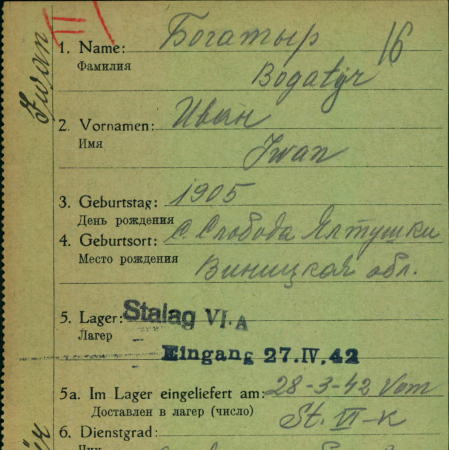 Iwan
II
16
1. Name: Богатыр
Фамилия
Bogatyr
2. Vornamen: Иван
Имя
Iwan
3. Geburtstag: 1905
День рождения
4. Geburtsort: с. Слобода Ялтушки
Место рождения
Виницкая обл.
5. Lager: Stalag VI-A
Лагер
Eingang 27.IV.42
5a. Im Lager eingeliefert am: 28-3-42 Vom
Доставлен в лагер (число)
St. VI-K
6. Dienstgrad: